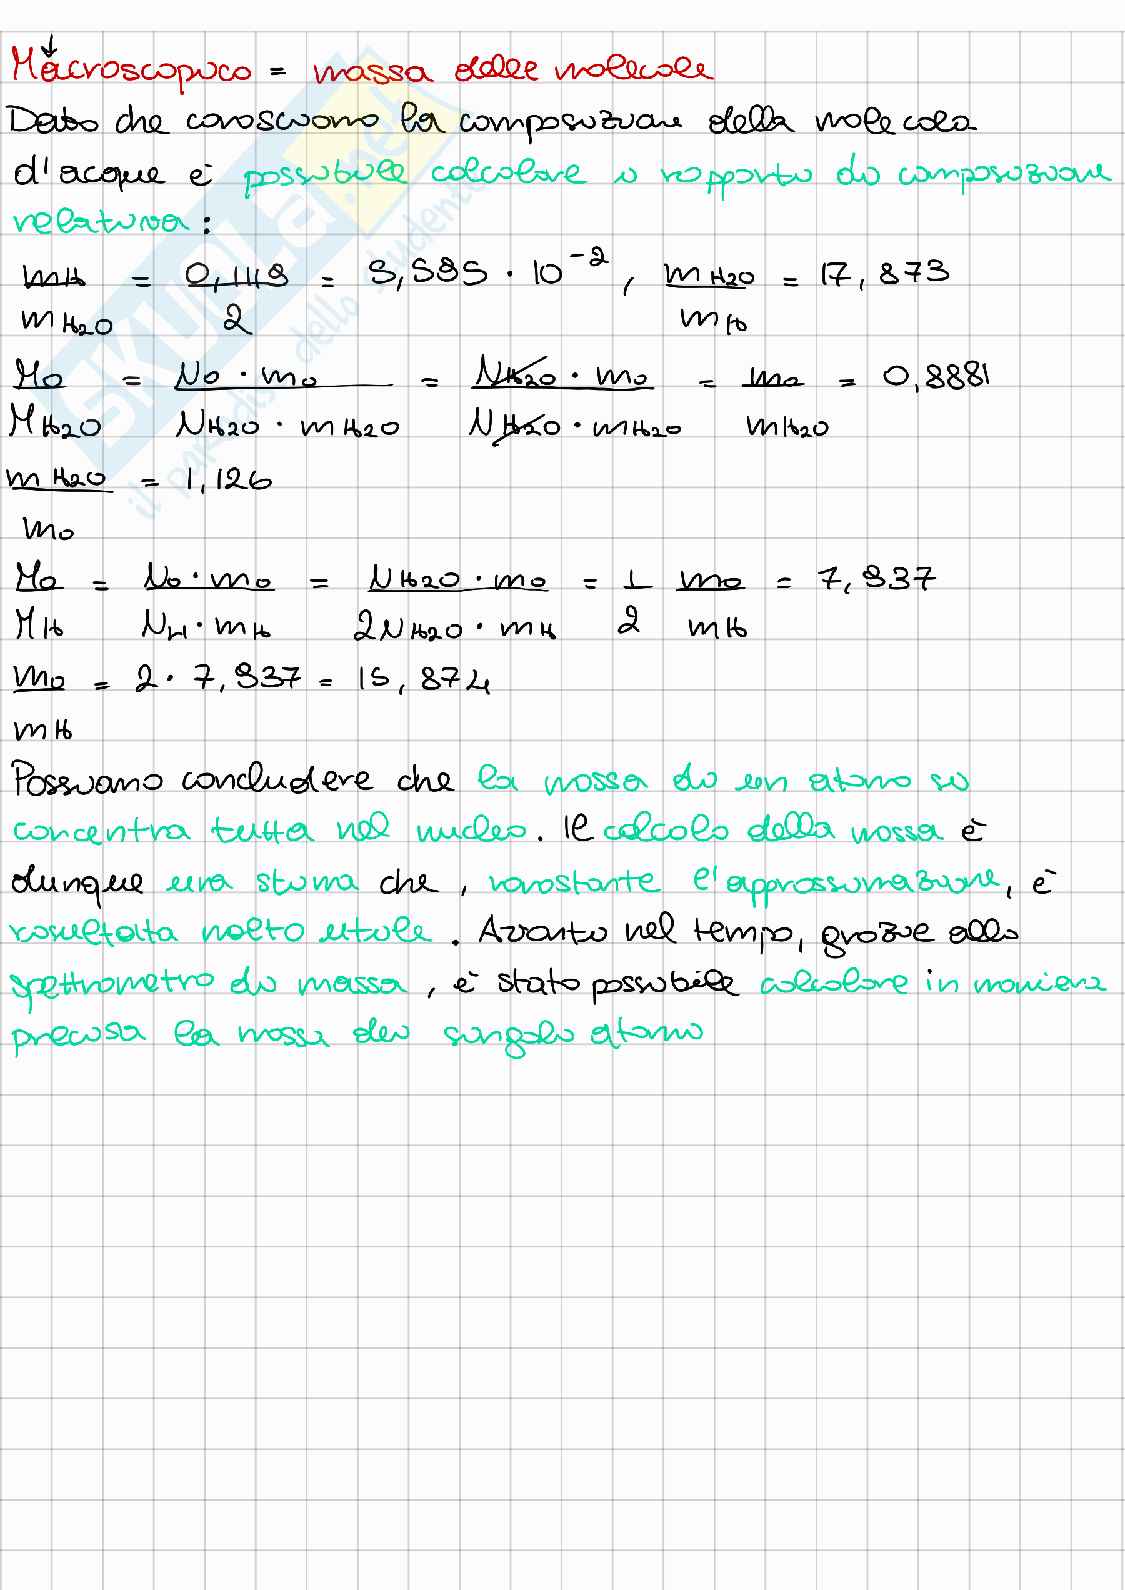 Macroscopico = massa delle molecole
Dato che conosciamo la composizione della molecola
d'acqua è possibile calcolare i rapporti di composizione
relativa:
mH / mH2O = 0,1119 / 2 = 5,595 · 10^-2, mH2O / mH = 17,873
MO / MH2O = NO · mO / NH2O · mH2O = NH2O · mO / NH2O · mH2O = mO / mH2O = 0,8881
mH2O / mO = 1,126
MO / MH = NO · mO / NH · mH = NH2O · mO / 2NH2O · mH = 1 / 2 mO / mH = 7,937
mO / mH = 2 · 7,937 = 15,874
Possiamo concludere che la massa di un atomo si
concentra tutta nel nucleo. Il calcolo della massa è
dunque una stima che, nonostante l'approssimazione, è
risultata molto utile. Avanti nel tempo, grazie allo
spettrometro di massa, è stato possibile calcolare in maniera
precisa la massa dei singoli atomi
SKUOLA.net
il paradiso dello studente